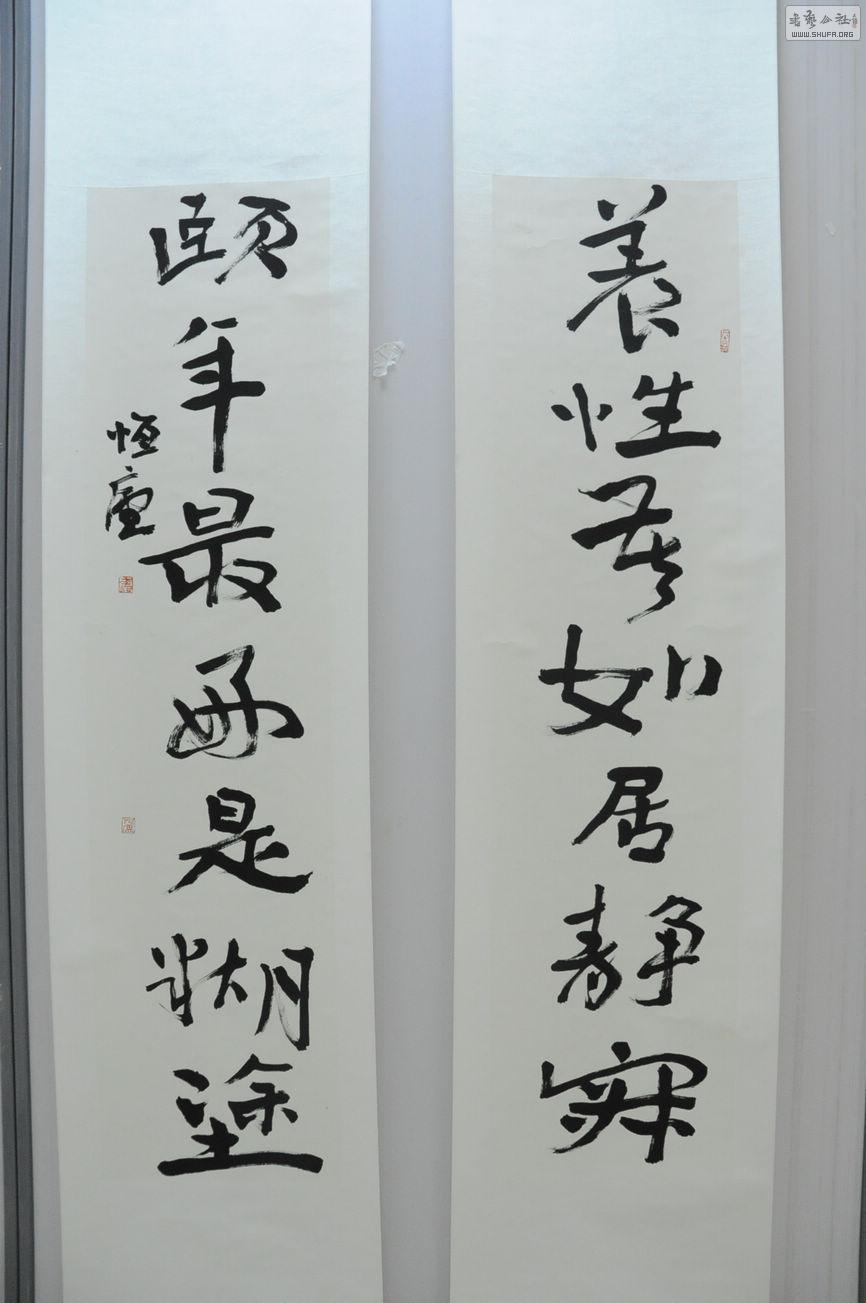 養性莫如居靜寐
頤年最好是糊塗
恒廬
書藝公社
WWW.SHUFA.ORG